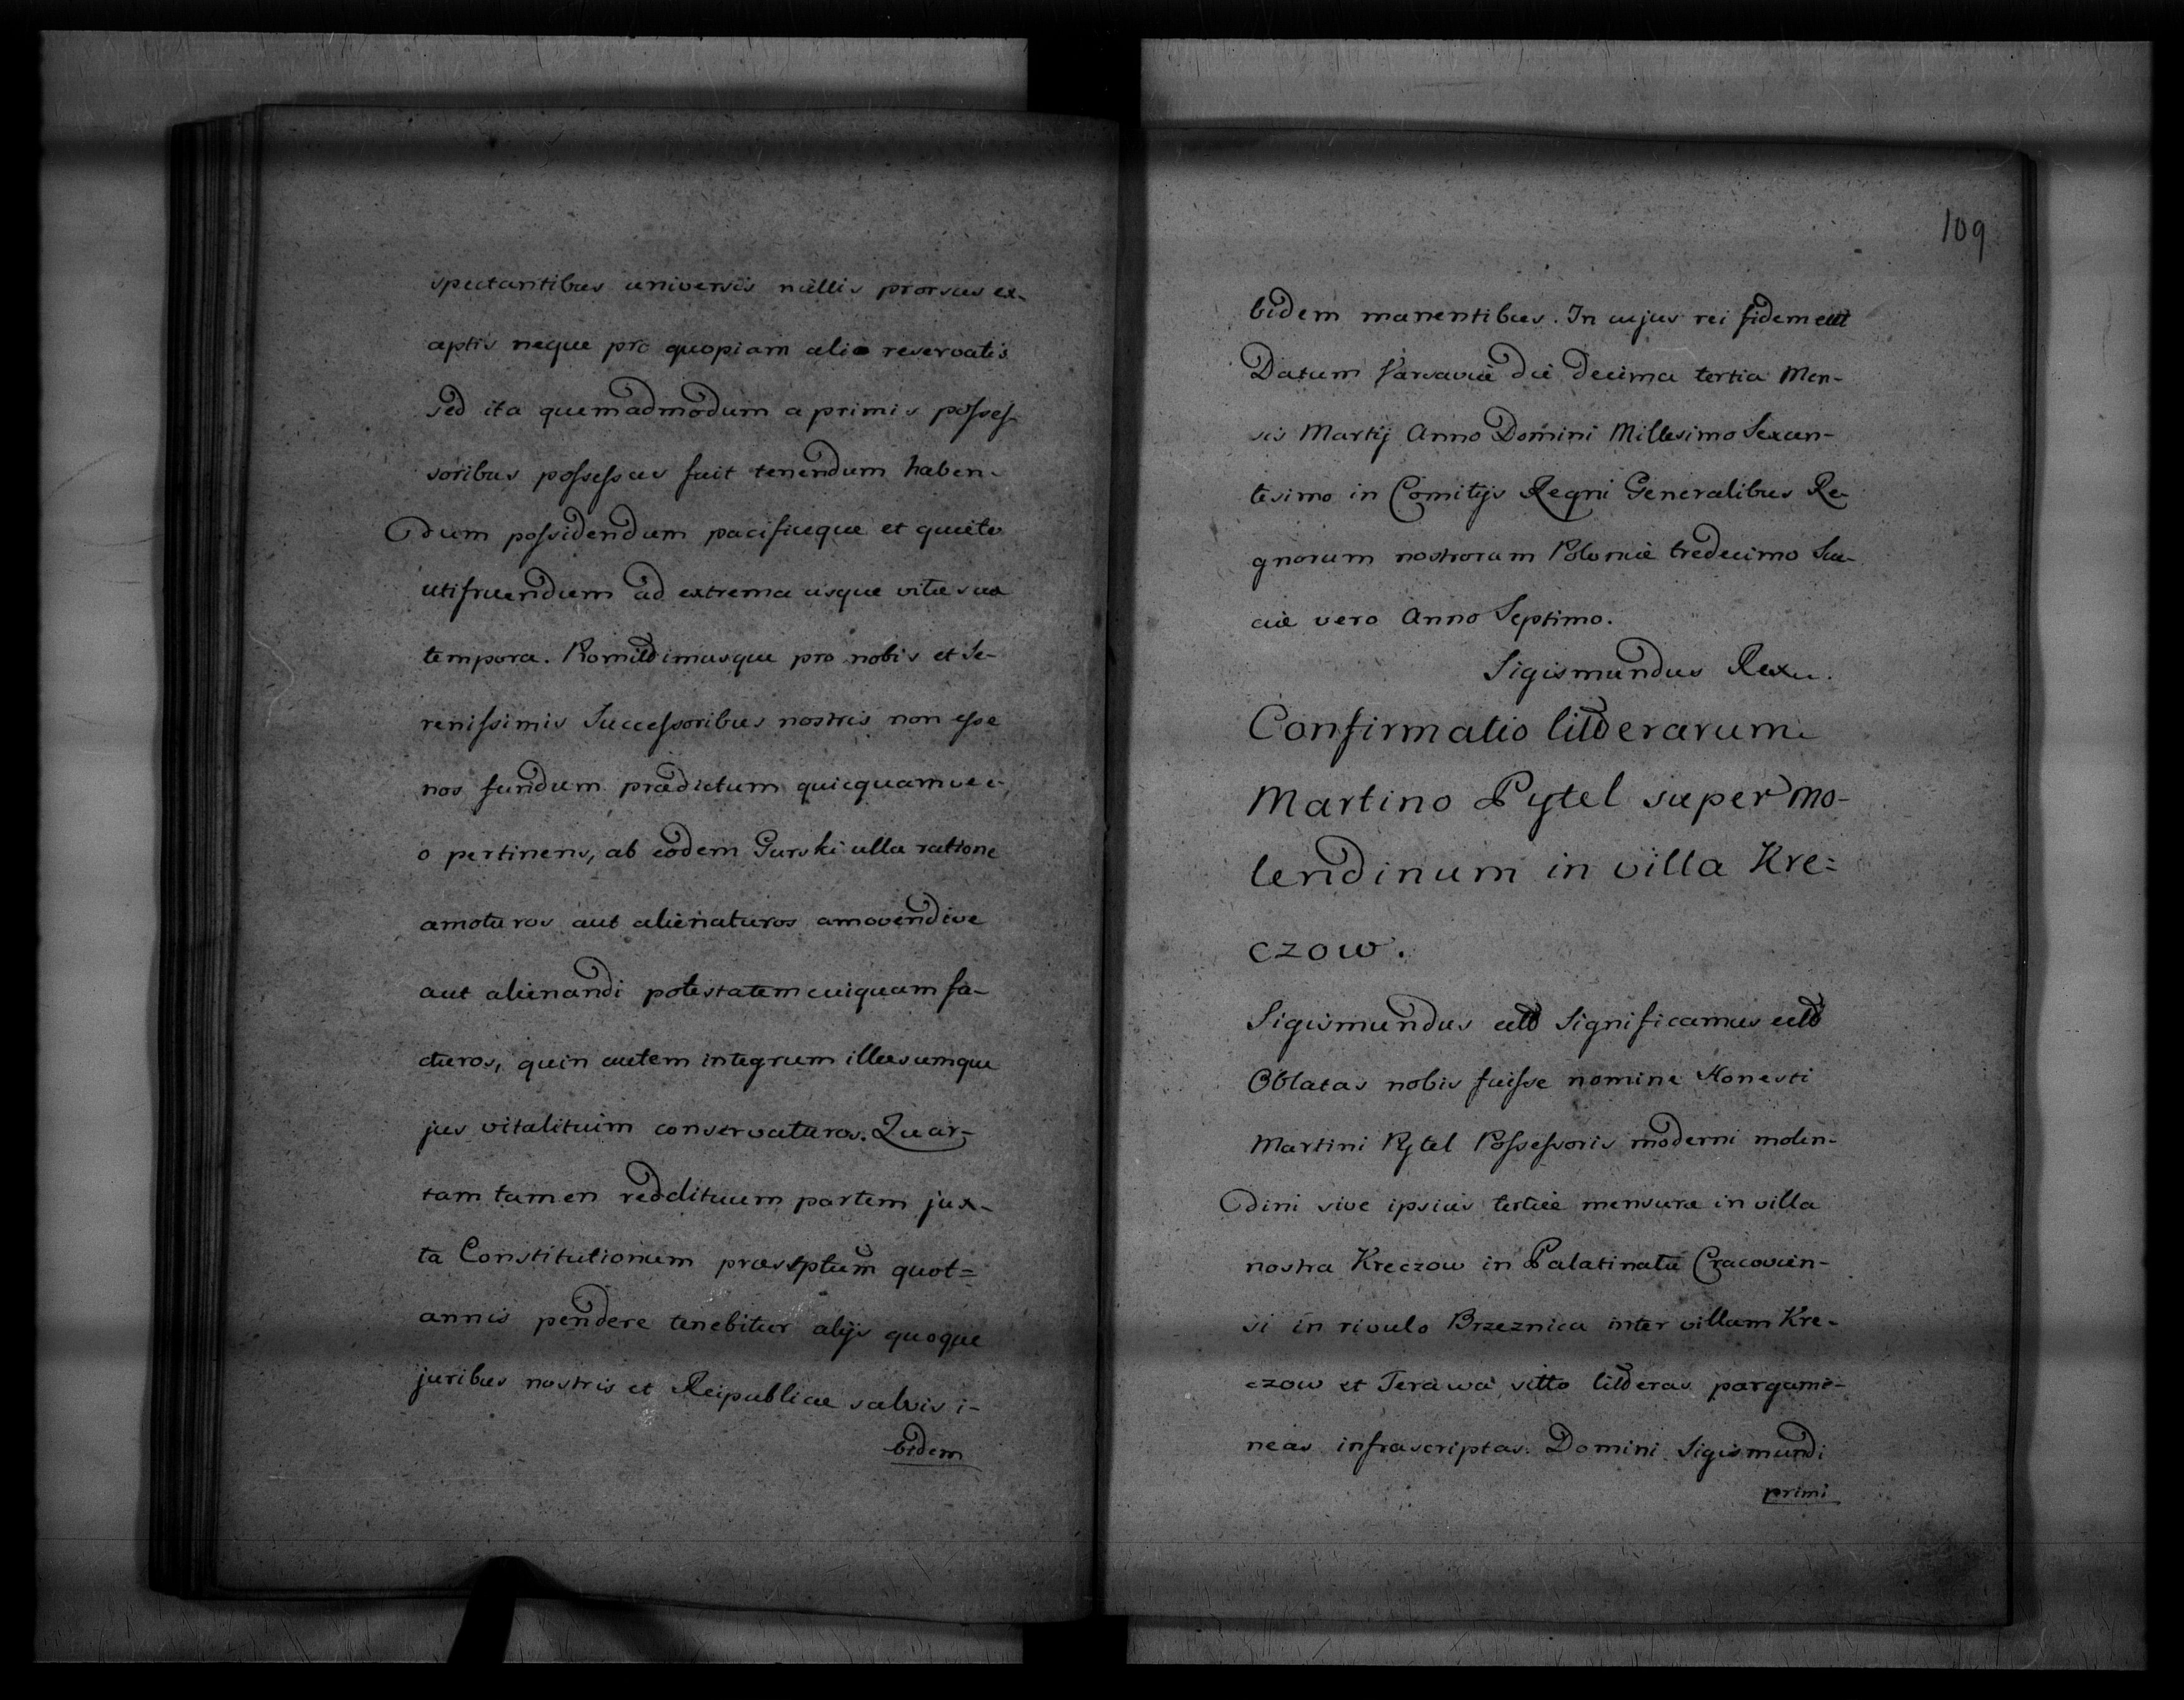 spectantibus universis nullis prorsus ex-
ceptis neque pro quopiam alio reservatis
sed ita quemadmodum a primis posses-
soribus possessus fuit tenendum haben-
dum possidendum pacificeque et quiete
utifruendum ad extrema usque vitæ suæ
tempora. Promittimusque pro nobis et Se-
renissimis Successoribus nostris non esse
nos fundum prædictum quicquamve e-
o pertinens, ab eodem Gurski ulla ratione
amoturos aut alienaturos amovendive
aut alienandi potestatem cuiquam fa-
cturos, quin autem integrum illæsumque
jus vitalitium conservaturos. Quar-
tam tamen reddituum partem jux-
ta Constitutionum præscriptum quot=
annis pendere tenebitur alijs quoque
juribus nostris et Reipublicæ salvis i-
bidem
109
bidem manentibus. In cujus rei fidem ett
Datum Varsaviæ die decima tertia Men-
sis Martij Anno Domini Millesimo Sexcen-
tesimo in Comitijs Regni Generalibus Re-
gnorum nostrorum Poloniæ tredecimo Sue-
ciæ vero Anno Septimo.
Sigismundus Rex.
Confirmatio litterarum
Martino Pytel super mo-
lendinum in villa Kre=
czow.
Sigismundus ett Significamus ett
Oblatas nobis fuisse nomine Honesti
Martini Pytel Possessoris moderni molen-
dini sive ipsius tertiæ mensuræ in villa
nostra Kreczow in Palatinatu Cracovien-
si in rivulo Brzeznica inter villam Kre-
czow et Terawa sitto litteras pargame-
neas infrascriptas. Domini Sigismundi
primi